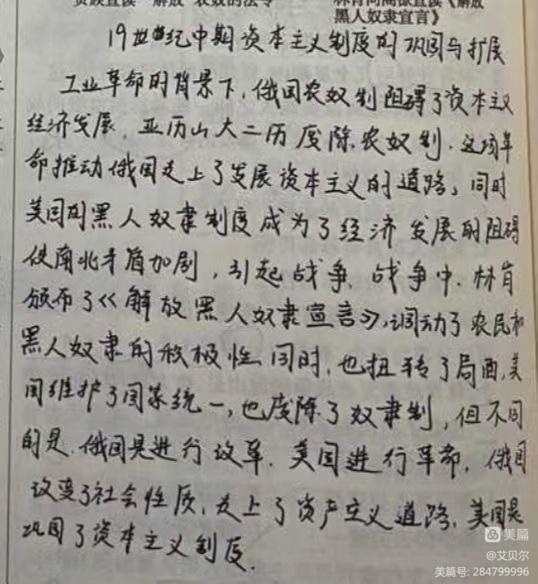 贵族宣读"解放"农奴的法令
林肯向阁僚宣读《解放
黑人奴隶宣言》
19世纪中期资本主义制度的巩固与扩展
工业革命的背景下,俄国农奴制阻碍了资本主义
经济发展,亚历山大二历废除农奴制.这场革
命推动俄国走上了发展资本主义的道路,同时
美国的黑人奴隶制度成为了经济发展的阻碍
使南北矛盾加剧,引起战争.战争中.林肯
颁布了《解放黑人奴隶宣言》,调动了农民和
黑人奴隶的积极性同时,也扭转了局面,美
国维护了国家统一,也废除了奴隶制,但不同
的是.俄国是进行改革.美国进行革命,俄国
改变了社会性质,走上了资产主义道路.美国是
巩固了资本主义制度.
美篇
@艾贝尔
美篇号: 284799996